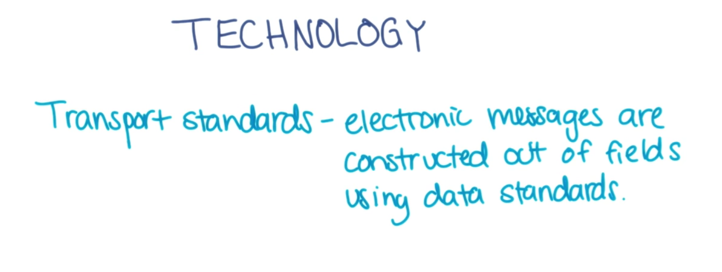 TECHNOLOGY
Transport standards - electronic messages are
constructed out of fields
using data standards.